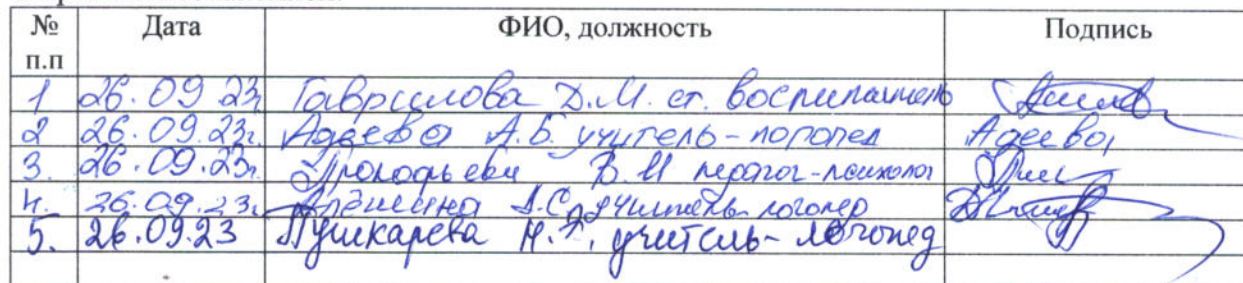 № п.п Дата ФИО, должность Подпись
1 26.09.23г Гаврилова Д.М. ст. воспитатель
2 26.09.23г. Адеева А.Б. учитель-логопед Адеева
3. 26.09.23г. Прокофьева В.И педагог-психолог
4. 26.09.23г. Алешина А.С. учитель-логопед
5. 26.09.23 Пушкарева Н. учитель-логопед